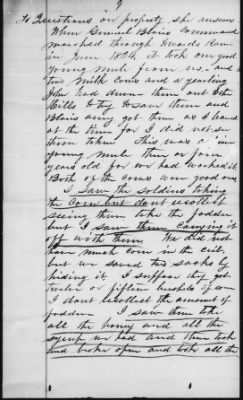 9
To Questions on property she answers
When General Blairs command
marched through towards Rome
in June 1864, it took our good
young mule from us, and
two milk cows and a yearling
John had driven them out the
hills to try to save them and
Blairs army got them as I heard
at the time for I did not see
them taken This was a
young mule three or four
years old for we had worked it
Both of the cows were good ones
I saw the soldiers taking
the corn but dont recollect
seeing them take the fodder
but I saw them carrying it
off with them We did not
have much corn in the crib
but we saved two sacks by
hiding it I suppose they got
twelve or fifteen bushels of corn
I dont recollect the amount of
fodder I saw them take
all the honey and all the
syrup we had and then took
and broke open and took all the